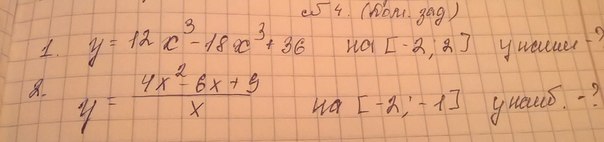 № 4. (Дом. зад)
1. y = 12x³ - 18x³ + 36 на [-2; 2] y наим - ?
2. y = (4x² - 6x + 9) / x на [-2; -1] y наиб. - ?